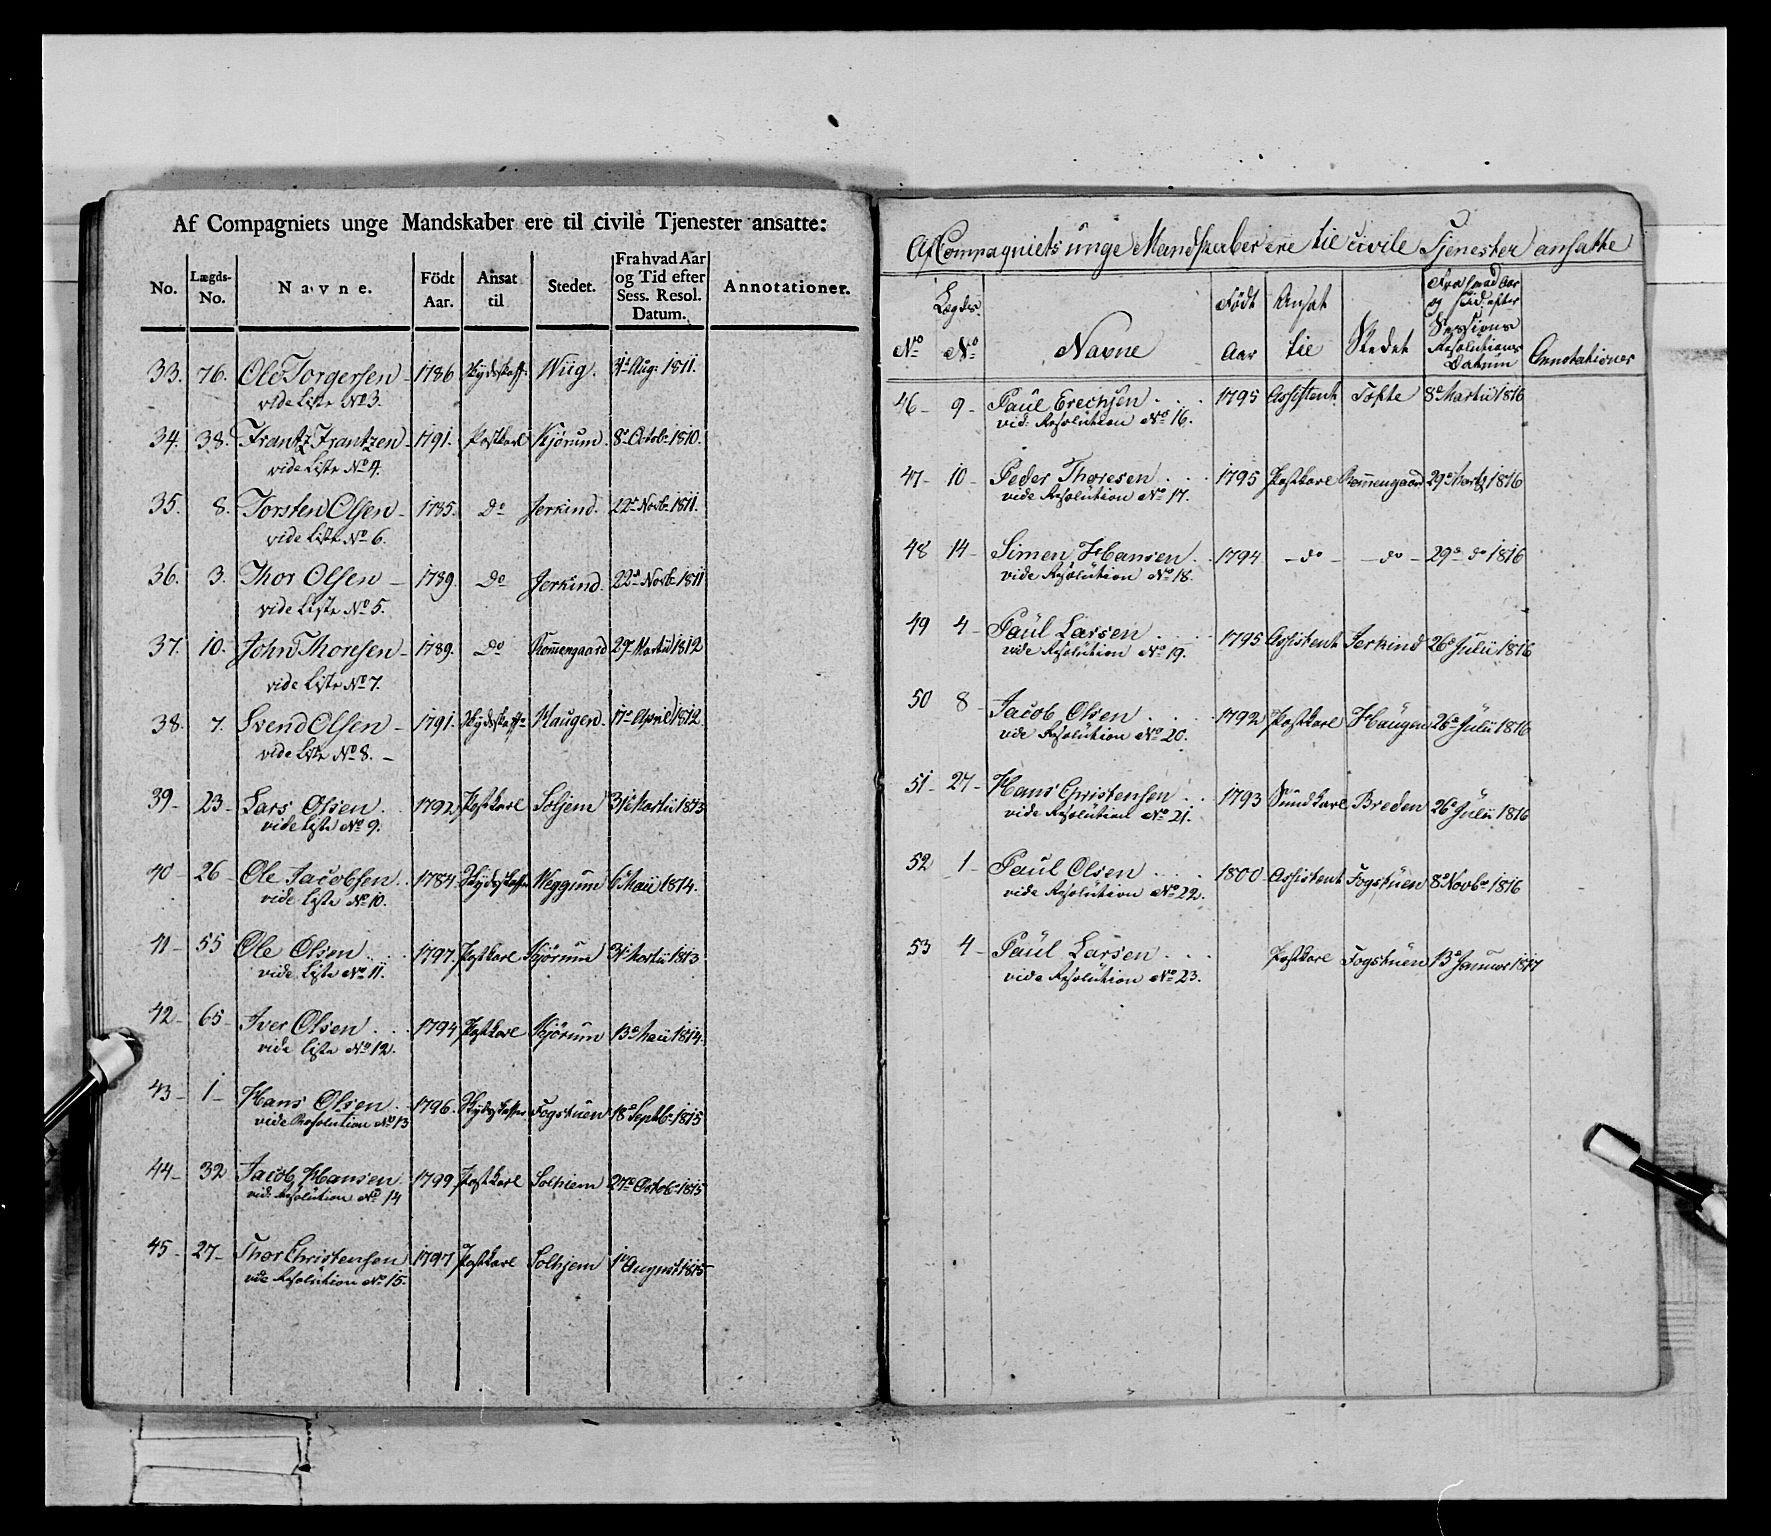 Af Compagniets unge Mandskaber ere til civile Tjenester ansatte:
No. Lægds-No. Navne. Födt Aar. Ansat til Stedet. Fra hvad Aar og Tid efter Sess. Resol. Datum. Annotationer.
33. 76. Ole Torgersen 1786 Skydsskaff. Wiig. Aug: 1811.
vide Liste No 3.
34. 38. Frantz Frantzen 1791. Postkarl Kjörum. 8de Octob: 1810.
vide Liste No 4.
35. 8. Torsten Olsen 1785. Do Jerkind. 22de Novb: 1811.
vide Liste No 6.
36. 3. Thor Olsen 1789. Do Jerkind. 22de Novb: 1811
vide Liste No 5.
37. 10. John Thoresen 1789. Do Rommengaard 29de Martii 1812
vide Liste No 7.
38. 7. Svend Olsen 1791. Skydsskaff. Haugen. 17de April 1812.
vide Liste No 8.
39 23 Lars Olsen 1792 Postkarl Solhjem Martii 1813
vide Liste No 9.
40 26 Ole Jacobsen 1784 Skydsskaffer Weggum 6 Maii 1814.
vide Liste No 10.
41 55 Ole Olsen 1797. Postkarl Kjörum Martii 1813
vide Liste No 11.
42 65 Iver Olsen 1794 Postkarl Kjörum 13de Maii 1814.
vide Liste No 12.
43 1 Hans Olsen 1796. Skydsskaffer Fogstuen 18de Septb: 1815
vide Resolution No 13
44 32 Jacob Hansen 1799 Postkarl Solhiem 27de Octob: 1815
vid: Resolution No 14
45 27 Thor Christensen 1797 Postkarl Solhjem 1te August 1815
vide Resolution No 15.
Af Compagniets unge Mandskaber ere til civile Tjenester ansatte
No Lægds No Navne Födt Aar Ansat til Stedet Fra hvad Aar og Tid efter Sessions Resolutions Datum Annotationer
46 9 Paul Erechsen 1795 Assistent Tofte 8de Martii 1816
vid: Resolution No 16.
47 10 Peder Thoresen 1795 Postkarl Rommengaard 29de Marty 1816
vide Resolution No 17.
48 14 Simen Hansen 1794 do do 29de do 1816
vide Resolution No 18.
49 4 Paul Larsen 1795 Assistent Jerkind 26de Julii 1816
vide Resolution No 19.
50 8 Jacob Olsen 1792 Postkarl Haugen 26de Julii 1816
vide Resolution No 20.
51 27 Hans Christensen 1793 Sundkarl Breden 26de Julii 1816
vide Resolution No 21.
52 1 Paul Olsen 1800 Assistent Fogstuen 8de Novbr 1816
vide Resolution No 22.
53 4 Paul Larsen Postkarl Fogstuen 13de Januar 1817
vide Resolution No 23.